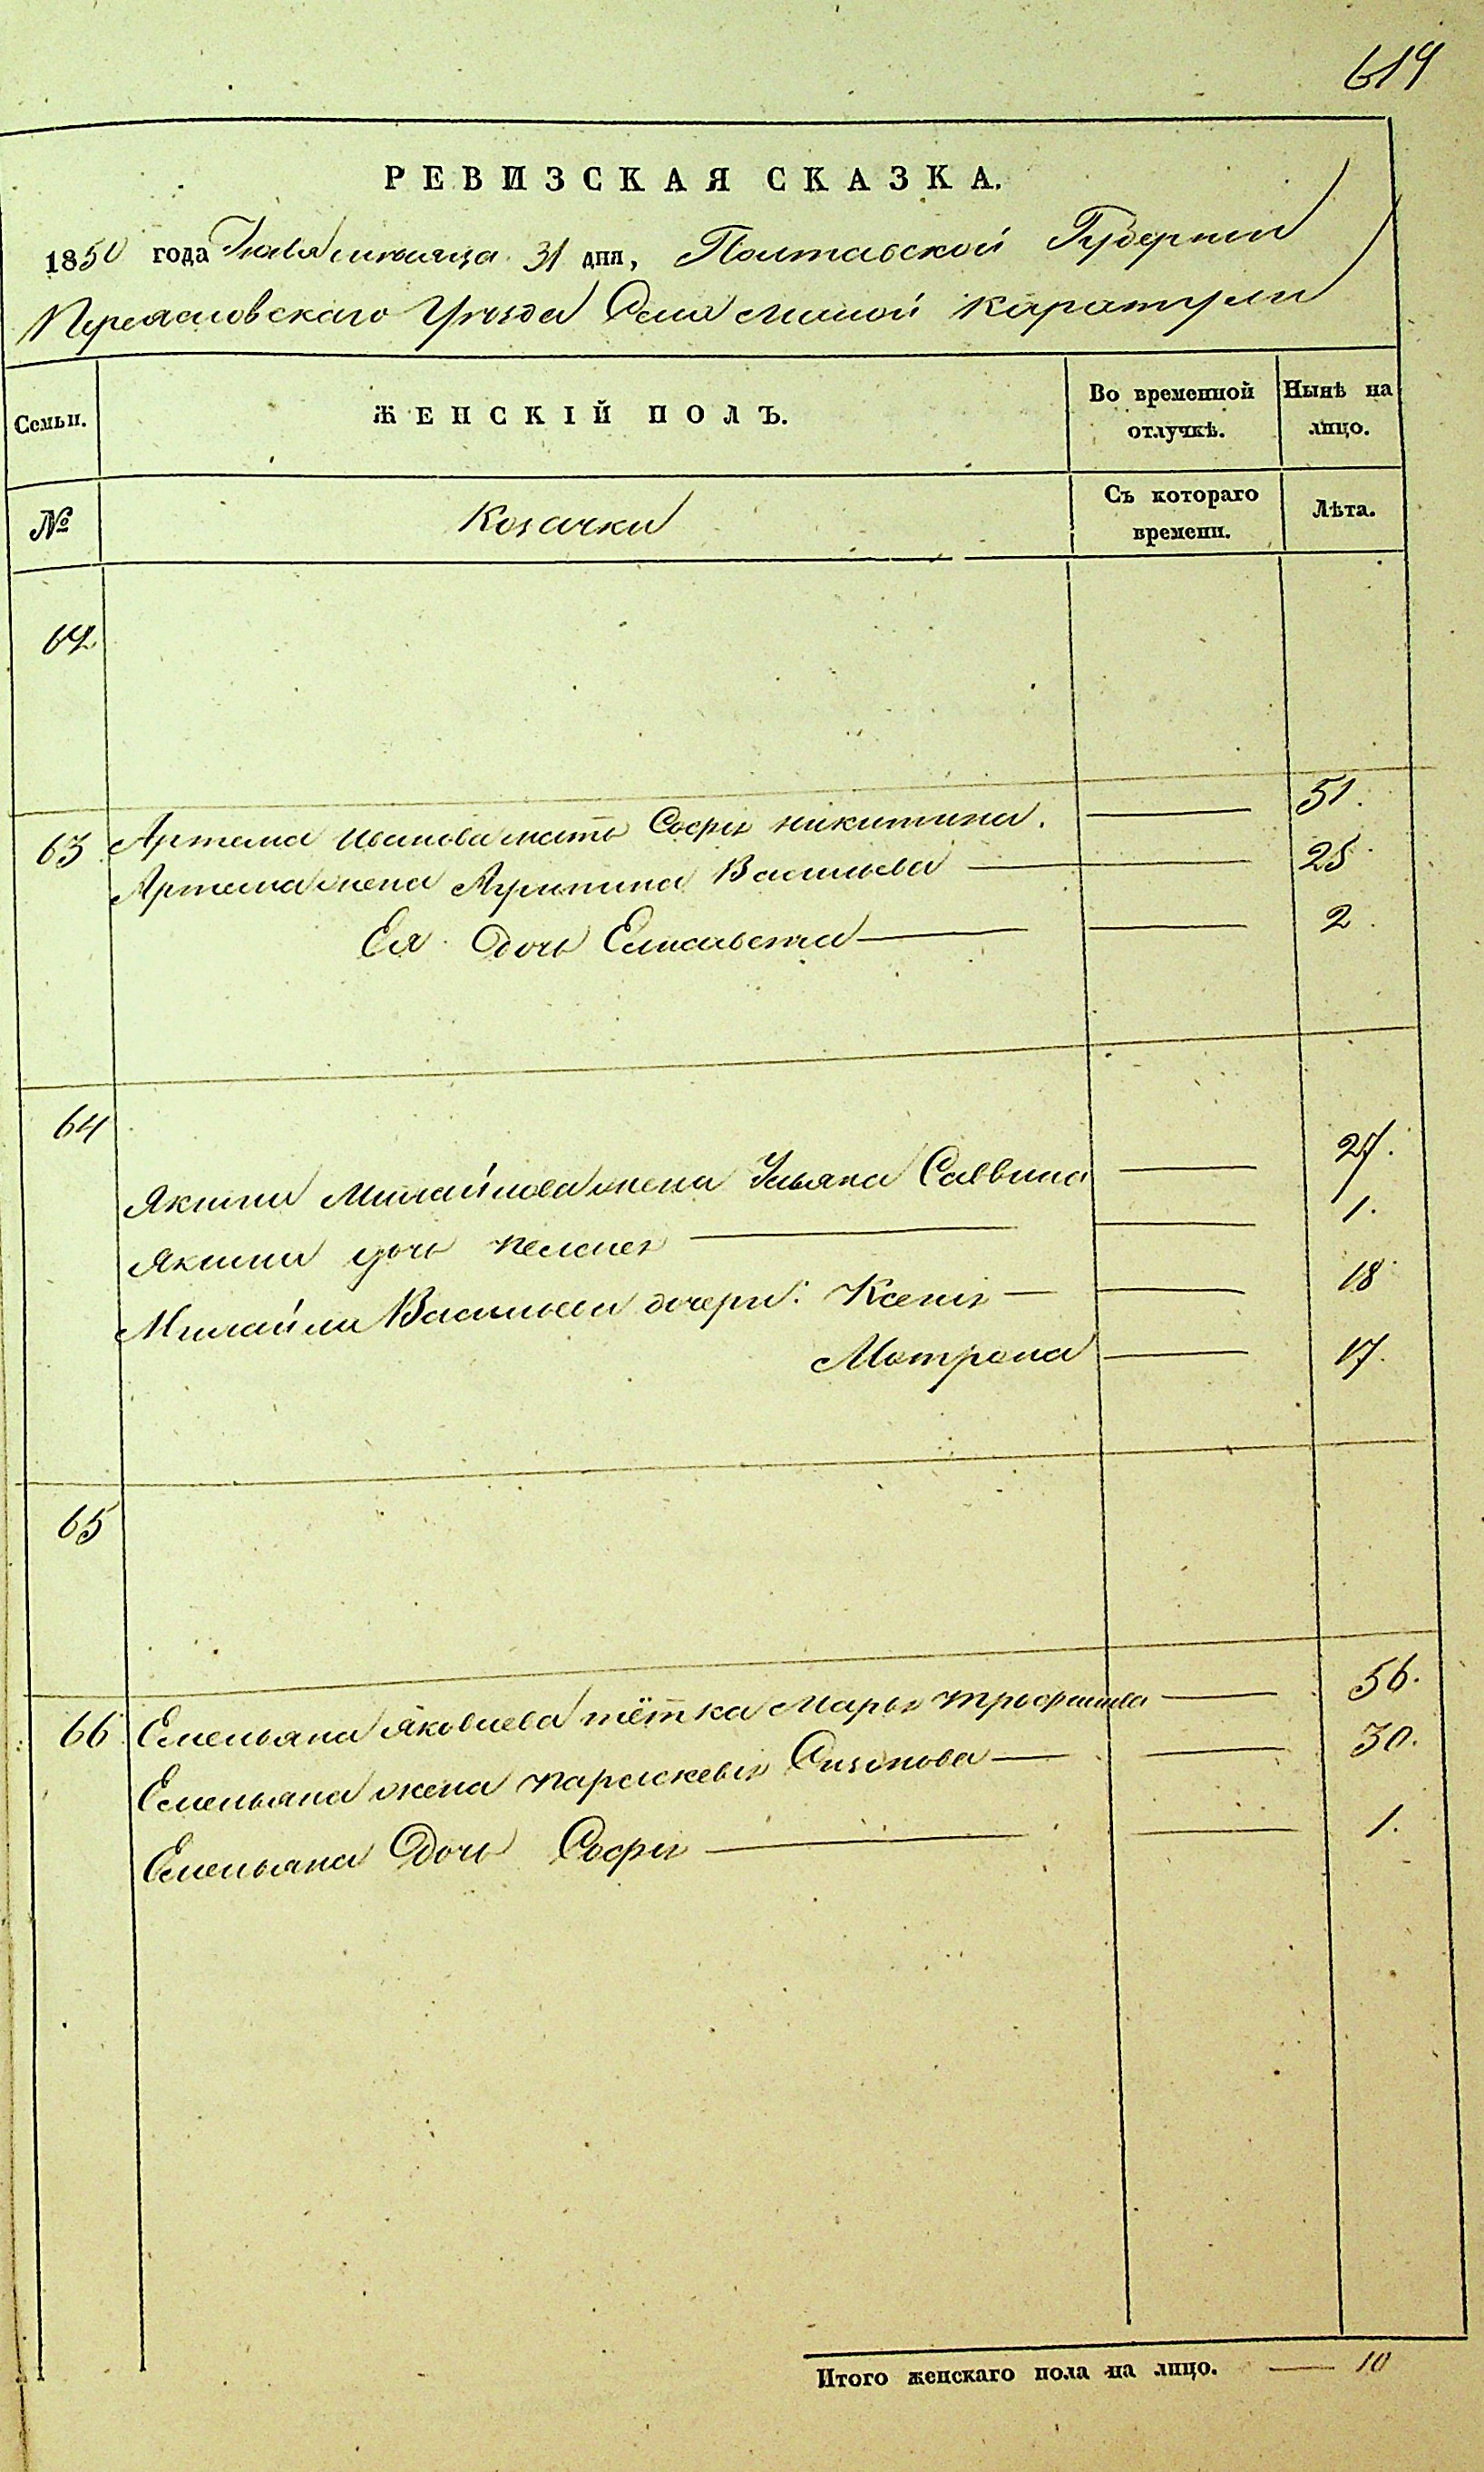 619
РЕВИЗСКАЯ СКАЗКА.
1850 года Іюля месяца 31 дня, Полтавской Губерніи
Переясловскаго Уезда Села малой каратули
Семьи.
ЖЕНСКІЙ ПОЛЪ.
Во временной отлучкѣ.
Нынѣ на лицо.
№
Козачки
Съ котораго времени.
Лѣта.
62
63 Артема иванова мать Софія никитина. 51.
Артема жена Агрипина Васильева 25
Ея дочь Елисавета 2.
64
Якима Михайлова жена Ульяна Саввина 27.
Якима дочь пелагея 1.
Михайлы Васильева дочери: Ксенія 18
Мотрона 17.
65
66 Емельяна яковлева тётка Марья трофимова 56.
Емельяна жена параскевія Сизонова 30.
Емельяна Дочь Софія 1.
Итого женскаго пола на лицо. 10